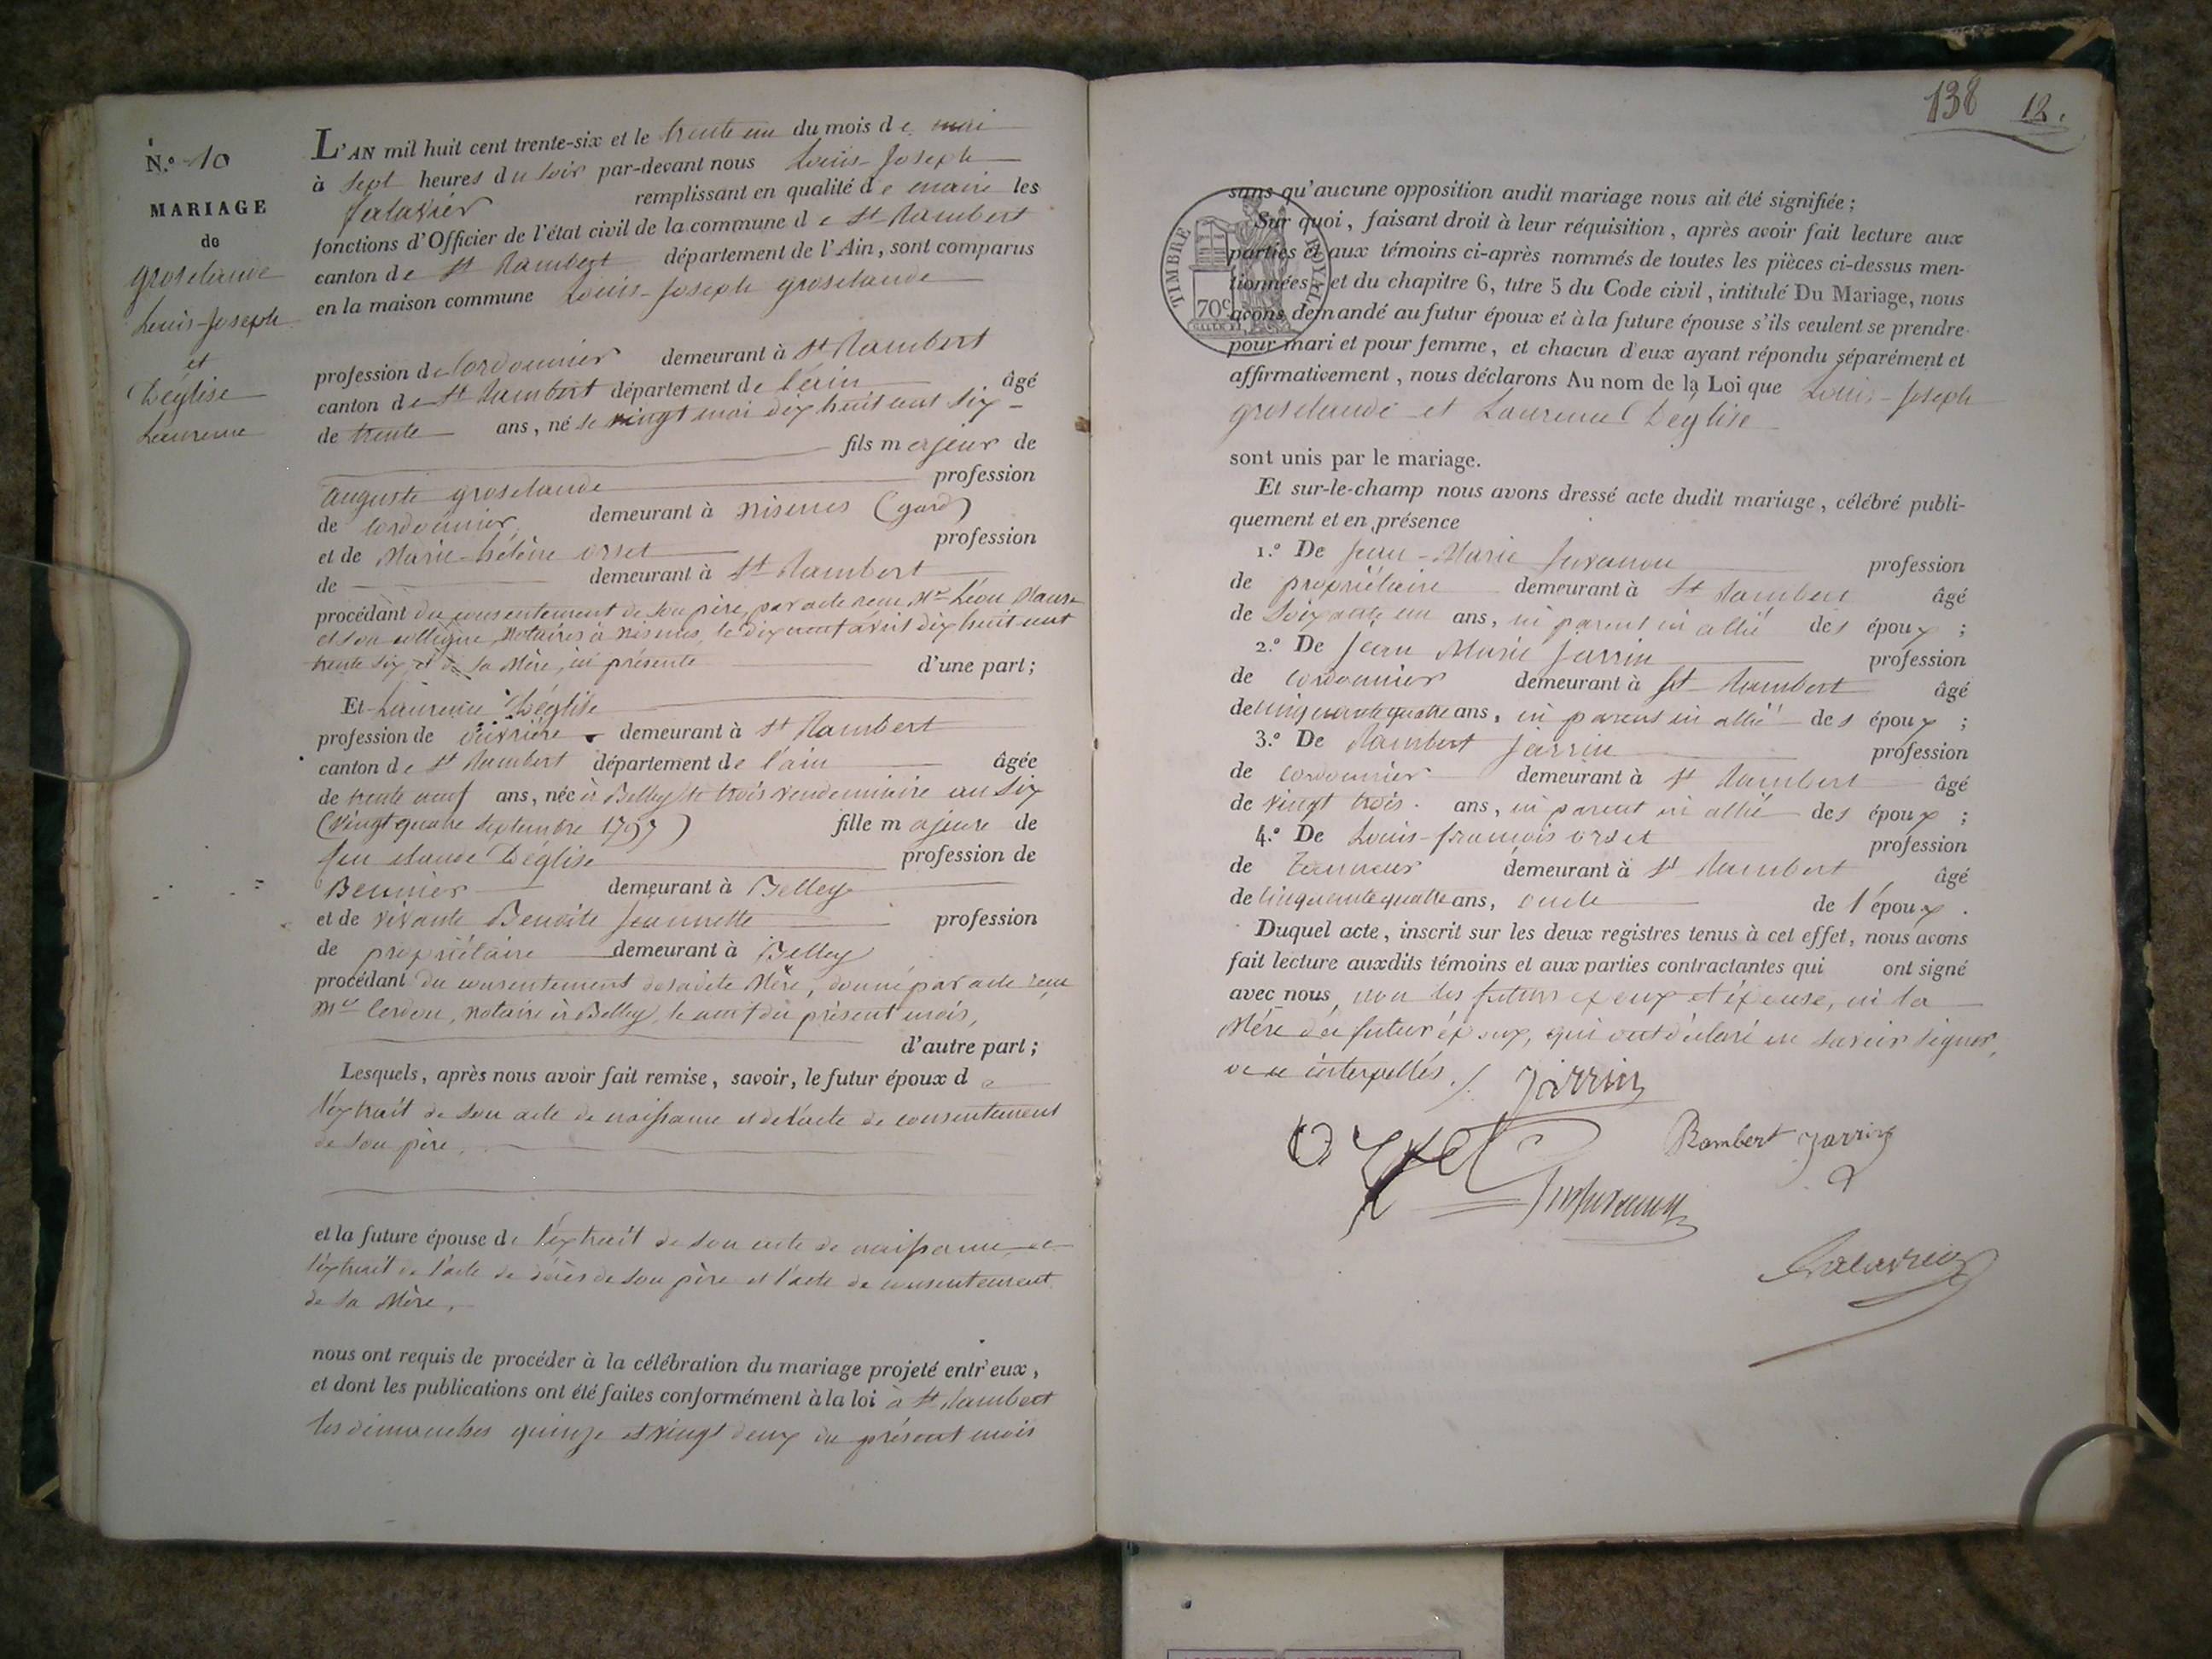 N.º 10
MARIAGE
de
groselaude
Louis-Joseph
et
Déglise
Laurence
L'AN mil huit cent trente-six et le trente un du mois de mai
à sept heures du soir par-devant nous Louis-Joseph
remplissant en qualité de maire les
fonctions d'Officier de l'état civil de la commune de St Rambert
canton de St Rambert département de l'Ain, sont comparus
en la maison commune Louis-Joseph groselaude
profession de Cordonnier demeurant à St Rambert
canton de St Rambert département de l'ain âgé
de trente ans, né le vingt mai dix huit cent six
fils majeur de
auguste groselaude profession
de cordonnier demeurant à Nismes (gard)
et de Marie-hélène orset profession
de demeurant à St Rambert
procédant du consentement de son père, par acte reçu Me Léon
et son collègue, Notaires à Nismes, le dix neuf avril dix huit cent
trente six, et de sa Mère, ici présente d'une part;
Et Laurence Déglise
profession de ouvrière demeurant à St Rambert
canton de St Rambert département de l'ain âgée
de trente neuf ans, née à Belley le trois vendemiaire an Six
(vingt quatre septembre 1797) fille majeure de
feu claude Déglise profession de
demeurant à Belley
et de vivante Benoite Jeannette profession
de propriétaire demeurant à Belley
procédant du consentement de sadite Mère, donné par acte reçu
Me Cerdon, Notaire à Belley, le neuf du présent mois,
d'autre part;
Lesquels, après nous avoir fait remise, savoir, le futur époux de
l'extrait de son acte de naissance et de l'acte de consentement
de son père,
et la future épouse de l'extrait de son acte de naissance, de
l'extrait de l'acte de décès de son père et l'acte de consentement
de sa Mère,
nous ont requis de procéder à la célébration du mariage projeté entr'eux,
et dont les publications ont été faites conformément à la loi à St Rambert
les dimanches quinze et vingt deux du présent mois
138 12.
TIMBRE ROYAL
70c
sans qu'aucune opposition audit mariage nous ait été signifiée;
Sur quoi, faisant droit à leur réquisition, après avoir fait lecture aux
parties et aux témoins ci-après nommés de toutes les pièces ci-dessus men-
tionnées, et du chapitre 6, titre 5 du Code civil, intitulé Du Mariage, nous
avons demandé au futur époux et à la future épouse s'ils veulent se prendre
pour mari et pour femme, et chacun d'eux ayant répondu séparément et
affirmativement, nous déclarons Au nom de la Loi que Louis-Joseph
groselaude et Laurence Déglise
sont unis par le mariage.
Et sur-le-champ nous avons dressé acte dudit mariage, célébré publi-
quement et en présence
1.º De Jean-Marie Juvanon profession
de propriétaire demeurant à St Rambert âgé
de Soixante un ans, ni parent ni allié des époux;
2.º De Jean Marie Jarrin profession
de cordonnier demeurant à St Rambert âgé
de cinquante quatre ans, ni parent ni allié des époux;
3.º De Rambert Jarrin profession
de cordonnier demeurant à St Rambert âgé
de vingt trois ans, ni parent ni allié des époux;
4.º De Louis-françois orset profession
de Tanneur demeurant à St Rambert âgé
de cinquante quatre ans, oncle de l'époux.
Duquel acte, inscrit sur les deux registres tenus à cet effet, nous avons
fait lecture auxdits témoins et aux parties contractantes qui ont signé
avec nous, non les futurs époux et épouse, ni la
Mère du futur époux, qui ont déclaré ne savoir signer,
de ce interpellés ./. Jarrin
Orset Rambert Jarrin